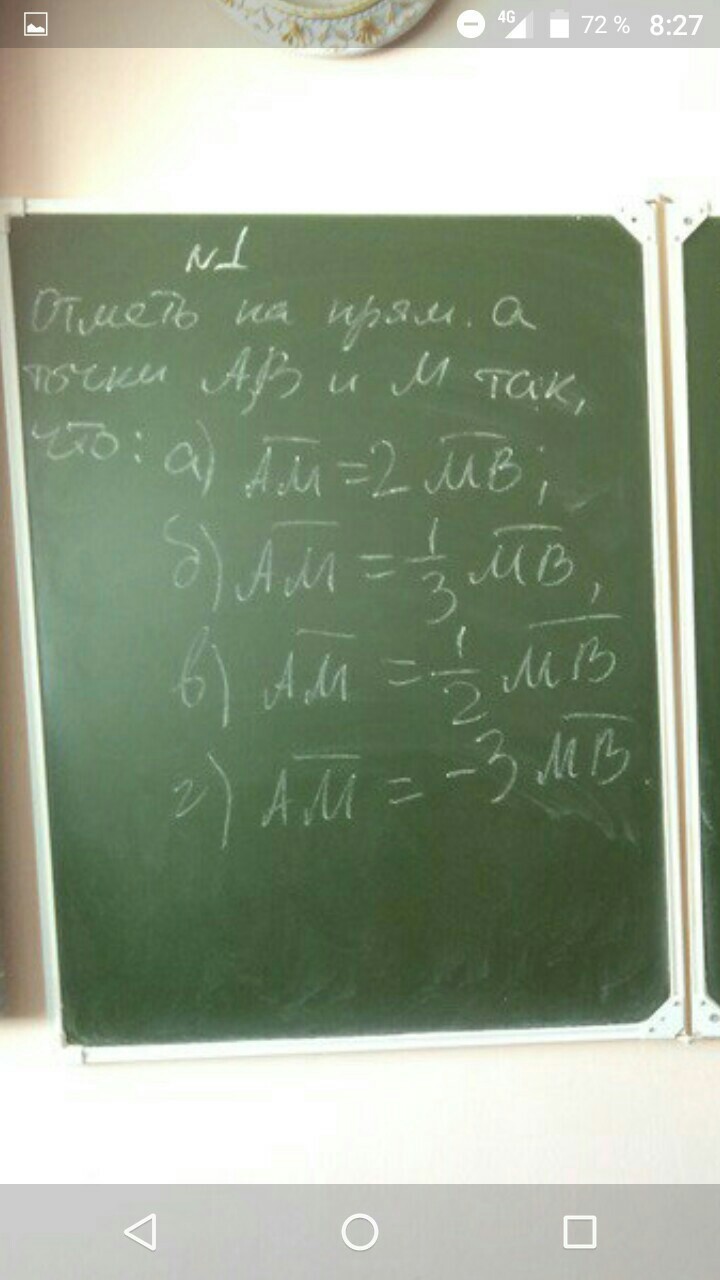 4G 72 % 8:27
№1
Отметь на прям. а
точки А,В и М так,
что: а) A̅M̅ = 2 M̅B̅;
б) A̅M̅ = 1/3 M̅B̅,
в) A̅M̅ = 1/2 M̅B̅
г) A̅M̅ = -3 M̅B̅.